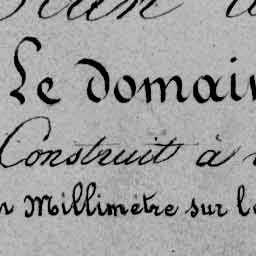 Le domain
Construit à
Millimètre sur l